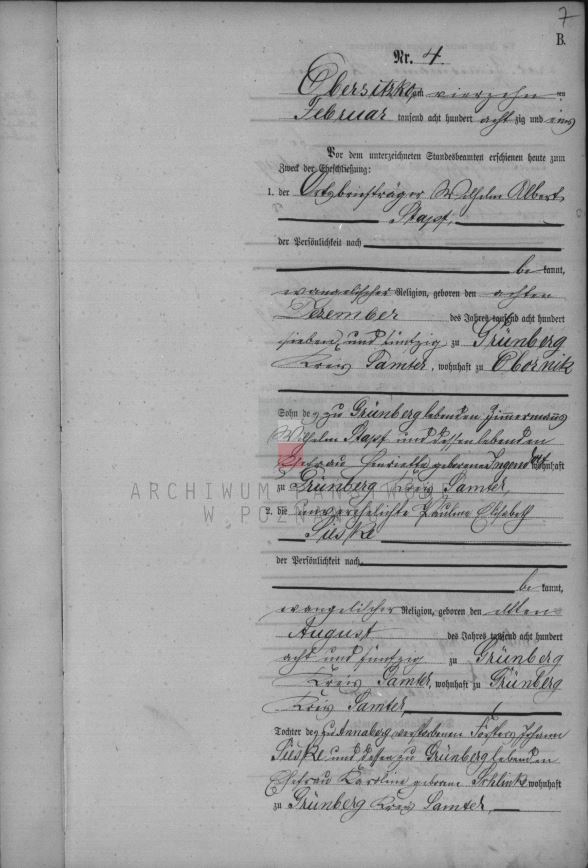 7
B.
Nr. 4.
Obersitzko, am vierzehn ten
Februar tausend acht hundert acht zig und eins
Vor dem unterzeichneten Standesbeamten erschienen heute zum
Zweck der Eheschließung:
1. der Ortsbriefträger Wilhelm Albert
Stapf,
der Persönlichkeit nach
be kannt,
evangelischer Religion, geboren den achten
Dezember des Jahres tausend acht hundert
sieben und fünfzig zu Grünberg
Kreis Samter, wohnhaft zu Obornik
Sohn des zu Grünberg lebenden Zimmermanns
Wilhelm Stapf und dessen lebenden
Ehefrau Henriette geborene wohnhaft
zu Grünberg Kreis Samter,
ARCHIWUM PAŃSTWOWE
W POZNANIU
2. die unverehelichte Pauline Elisabeth
Sieske
der Persönlichkeit nach
be kannt,
evangelischer Religion, geboren den elften
August des Jahres tausend acht hundert
acht und fünfzig zu Grünberg
Kreis Samter, wohnhaft zu Grünberg
Kreis Samter,
Tochter des zu Annaberg verstorbenen Försters Johann
Sieske und dessen zu Grünberg lebenden
Ehefrau Karoline geborene Schlinke wohnhaft
zu Grünberg Kreis Samter,